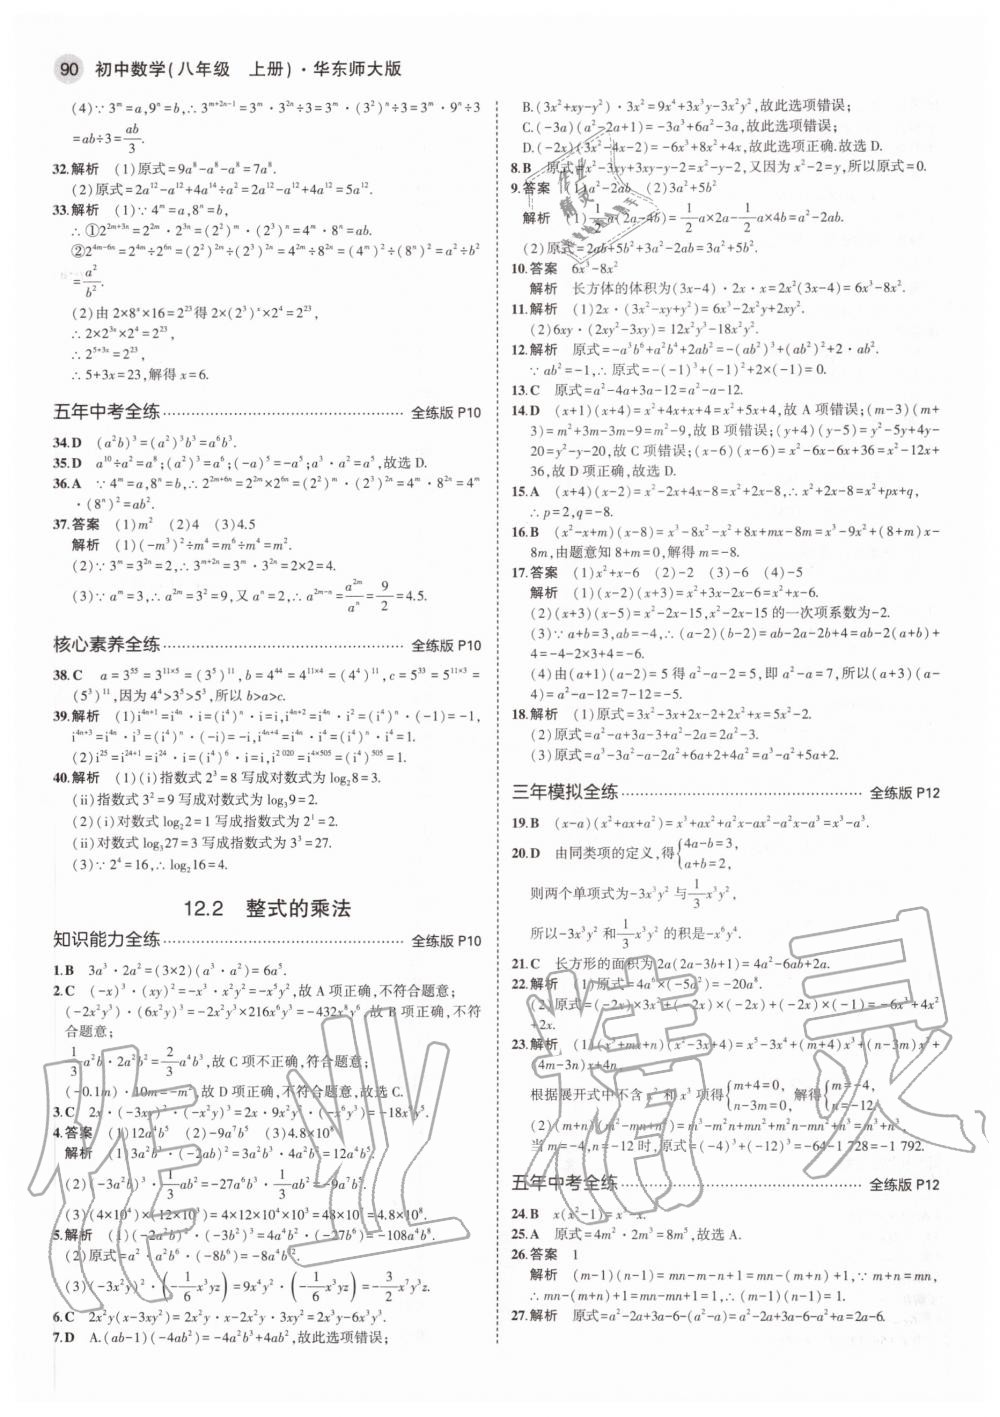 90 初中数学(八年级 上册)·华东师大版
(4)∵3^m=a,9^n=b,∴3^{m+2n-1}=3^m·3^{2n}÷3=3^m·(3^2)^n÷3=3^m·9^n÷3
=ab÷3=\frac{ab}{3}.
32.解析 (1)原式=9a^8-a^8-a^8=7a^8.
(2)原式=2a^{12}-a^{12}+4a^{14}÷a^2=2a^{12}-a^{12}+4a^{12}=5a^{12}.
33.解析 (1)∵4^m=a,8^n=b,
∴①2^{2m+3n}=2^{2m}·2^{3n}=(2^2)^m·(2^3)^n=4^m·8^n=ab.
②2^{4m-6n}=2^{4m}÷2^{6n}=(2^2)^{2m}÷(2^3)^{2n}=4^{2m}÷8^{2n}=(4^m)^2÷(8^n)^2=a^2÷b^2
=\frac{a^2}{b^2}.
(2)由2×8^x×16=2^{23}得2×(2^3)^x×2^4=2^{23},
∴2×2^{3x}×2^4=2^{23},
∴2^{5+3x}=2^{23},
∴5+3x=23,解得x=6.
五年中考全练 全练版P10
34.D (a^2b)^3=(a^2)^3b^3=a^6b^3.
35.D a^{10}÷a^2=a^8;(a^2)^3=a^6;(-a)^5=-a^5;a^3·a^2=a^5,故选D.
36.A ∵4^m=a,8^n=b,∴2^{2m+6n}=2^{2m}×2^{6n}=(2^2)^m·(2^3)^{2n}=4^m·8^{2n}=4^m
·(8^n)^2=ab^2.
37.答案 (1)m^2 (2)4 (3)4.5
解析 (1)(-m^3)^2÷m^4=m^6÷m^4=m^2.
(2)∵3^m=3^{2n}=2,∴3^{m+2n}=3^m·3^{2n}=2×2=4.
(3)∵a^m=3,∴a^{2m}=3^2=9,又a^n=2,∴a^{2m-n}=\frac{a^{2m}}{a^n}=\frac{9}{2}=4.5.
核心素养全练 全练版P10
38.C a=3^{55}=3^{11×5}=(3^5)^{11},b=4^{44}=4^{11×4}=(4^4)^{11},c=5^{33}=5^{11×3}=
(5^3)^{11},因为4^4>3^5>5^3,所以b>a>c.
39.解析 (1)i^{4n+1}=i^{4n}·i=(i^4)^n·i=i,i^{4n+2}=i^{4n}·i^2=(i^4)^n·(-1)=-1,
i^{4n+3}=i^{4n}·i^3=(i^4)^n·(-i)=-i,i^{4n+4}=i^{4n}·i^4=(i^4)^n·i^4=1.
(2)i^{25}=i^{24+1}=i^{24}·i=(i^4)^6·i=i,i^{2 020}=i^{4×505}=(i^4)^{505}=1.
40.解析 (1)(i)指数式2^3=8写成对数式为log_28=3.
(ii)指数式3^2=9写成对数式为log_39=2.
(2)(i)对数式log_22=1写成指数式为2^1=2.
(ii)对数式log_327=3写成指数式为3^3=27.
(3)∵2^4=16,∴log_216=4.
12.2 整式的乘法
知识能力全练 全练版P10
1.B 3a^3·2a^2=(3×2)(a^3·a^2)=6a^5.
2.C (-x)^3·(xy)^2=-x^3·x^2y^2=-x^5y^2,故A项正确,不符合题意;
(-2x^2y^3)·(6x^2y)^3=-2x^2y^3×216x^6y^3=-432x^8y^6,故B项正确,不符
合题意;
\frac{1}{3}a^2b·2a^2b^2=\frac{2}{3}a^4b^3,故C项不正确,符合题意;
(-0.1m)·10m=-m^2,故D项正确,不符合题意,故选C.
3.C 2x·(-3xy)^2·(-x^2y)^3=2x·9x^2y^2·(-x^6y^3)=-18x^9y^5.
4.答案 (1)12a^4b^5 (2)-9a^7b^5 (3)4.8×10^8
解析 (1)3a^2b^3·(-2ab)^2=3a^2b^3·4a^2b^2=12a^4b^5.
(2)(-3a^2b)^3·\frac{1}{3}ab^2=-27a^6b^3·\frac{1}{3}ab^2=-9a^7b^5.
(3)(4×10^4)×(12×10^3)=4×12×10^4×10^3=48×10^7=4.8×10^8.
5.解析 (1)(-2a^2b)^2·(-3b^2)^3=4a^4b^2·(-27b^6)=-108a^4b^8.
(2)原式=a^2b^6·(-8b^6)=-8a^4b^{12}.
(3)(-3x^2y)^2·(-\frac{1}{6}x^3yz)=9x^4y^2·(-\frac{1}{6}x^3yz)=-\frac{3}{2}x^7y^3z.
6.C 2x^2y(x-3xy^2)=2x^2y·x-2x^2y·3xy^2=2x^3y-6x^3y^3.
7.D A.(ab-1)(-4ab^2)=-4a^2b^3+4ab^2,故此选项错误;
B.(3x^2+xy-y^2)·3x^2=9x^4+3x^3y-3x^2y^2,故此选项错误;
C.(-3a)(a^2-2a+1)=-3a^3+6a^2-3a,故此选项错误;
D.(-2x)(3x^2-4x-2)=-6x^3+8x^2+4x,故此选项正确.故选D.
8.B 原式=x^2-3xy+3xy-y-2=x^2-y-2,又因为x^2-2=y,所以原式=0.
9.答案 (1)a^2-2ab (2)3a^2+5b^2
解析 (1)\frac{1}{2}a(2a-4b)=\frac{1}{2}a×2a-\frac{1}{2}a×4b=a^2-2ab.
(2)原式=2ab+5b^2+3a^2-2ab=3a^2+5b^2.
10.答案 6x^3-8x^2
解析 长方体的体积为(3x-4)·2x·x=2x^2(3x-4)=6x^3-8x^2.
11.解析 (1)2x·(3x^2-xy+y^2)=6x^3-2x^2y+2xy^2.
(2)6xy·(2xy^2-3xy)=12x^2y^3-18x^2y^2.
12.解析 原式=-a^3b^6+a^2b^4+2ab^2=-(ab^2)^3+(ab^2)^2+2·ab^2.
∵ab^2=-1,∴原式=-(-1)^3+(-1)^2+2×(-1)=0.
13.C 原式=a^2-4a+3a-12=a^2-a-12.
14.D (x+1)(x+4)=x^2+4x+x+4=x^2+5x+4,故A项错误;(m-3)(m+
3)=m^2+3m-3m-9=m^2-9,故B项错误;(y+4)(y-5)=y^2-5y+4y-
20=y^2-y-20,故C项错误;(x-6)(x-6)=x^2-6x-6x+36=x^2-12x+
36,故D项正确,故选D.
15.A (x+4)(x-2)=x^2-2x+4x-8=x^2+2x-8,∴x^2+2x-8=x^2+px+q,
∴p=2,q=-8.
16.B (x^2-x+m)(x-8)=x^3-8x^2-x^2+8x+mx-8m=x^3-9x^2+(8+m)x-
8m,由题意知8+m=0,解得m=-8.
17.答案 (1)x^2+x-6 (2)-2 (3)-6 (4)-5
解析 (1)(x-2)(x+3)=x^2+3x-2x-6=x^2+x-6.
(2)(x+3)(x-5)=x^2-2x-15,x^2-2x-15的一次项系数为-2.
(3)∵a+b=3,ab=-4,∴(a-2)(b-2)=ab-2a-2b+4=ab-2(a+b)+
4=-4-2×3+4=-6.
(4)由(a+1)(a-2)=5得a^2-a-2=5,即a^2-a=7,所以(a+3)(a-
4)=a^2-a-12=7-12=-5.
18.解析 (1)原式=3x^2-3x+2x-2+2x^2+x=5x^2-2.
(2)原式=a^2-a+3a-3+a^2-2a=2a^2-3.
(3)原式=a^3-3a^2-a-2a^2+6a+2+4a^2=a^3-a^2+5a+2.
三年模拟全练 全练版P12
19.B (x-a)(x^2+ax+a^2)=x^3+ax^2+a^2x-ax^2-a^2x-a^3=x^3-a^3.
20.D 由同类项的定义,得{4a-b=3,
a+b=2,
则两个单项式为-3x^3y^2与\frac{1}{3}x^3y^2,
所以-3x^3y^2和\frac{1}{3}x^3y^2的积是-x^6y^4.
21.C 长方形的面积为2a(2a-3b+1)=4a^2-6ab+2a.
22.解析 (1)原式=4a^6×(-5a^2)=-20a^8.
(2)原式=(-2x)×3x^2+(-2x)×(-2x)+(-2x)×(-1)=-6x^3+4x^2
+2x.
23.解析 (1)(x^3+mx+n)(x^2-3x+4)=x^5-3x^4+(m+4)x^3+(n-3m)x^2+
(4m-3n)x+4n,
根据展开式中不含x^2和x^3项得{m+4=0, 解得{m=-4,
n-3m=0, n=-12.
(2)(m+n)(m^2-mn+n^2)=m^3-m^2n+mn^2+m^2n-mn^2+n^3=m^3+n^3,
当m=-4,n=-12时,原式=(-4)^3+(-12)^3=-64-1 728=-1 792.
五年中考全练 全练版P12
24.B x(x^2-1)=x^3-x.
25.A 原式=4m^2·2m^3=8m^5,故选A.
26.答案 1
解析 (m-1)(n-1)=mn-m-n+1=mn-(m+n)+1,∵m+n=mn,
∴mn-(m+n)+1=mn-mn+1=1,∴(m-1)(n-1)=1.
27.解析 原式=a^2-2a+3a-6-(a^2-a)=a^2-2a+3a-6-a^2+a=2a-6.
作业精灵